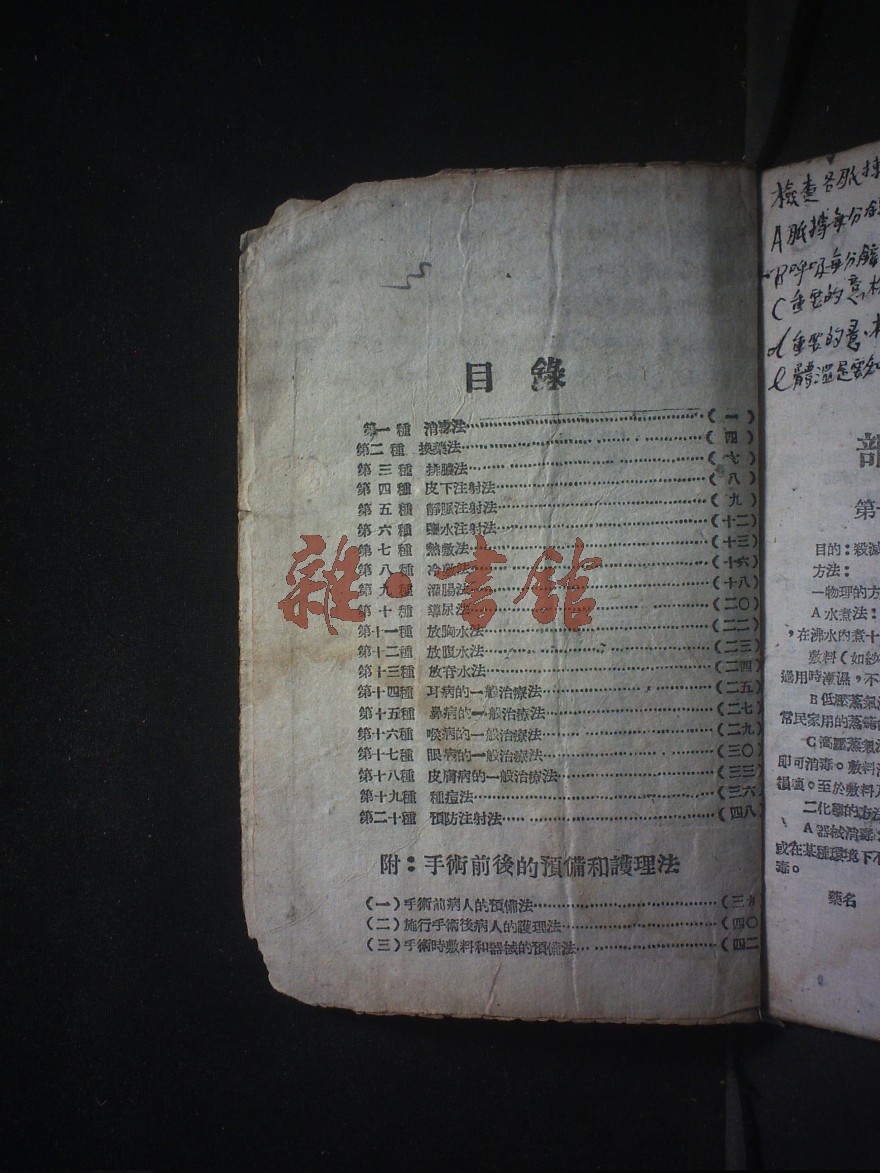 目錄
第一種 消毒法(一)
第二種 換藥法(四)
第三種 排膿法(七)
第四種 皮下注射法(八)
第五種 靜脈注射法(九)
第六種 鹽水注射法(十二)
第七種 熱敷法(十三)
第八種 冷敷法(十六)
第九種 灌腸法(十八)
第十種 導尿法(二〇)
第十一種 放胸水法(二二)
第十二種 放腹水法(二三)
第十三種 放脊水法(二四)
第十四種 耳病的一般治療法(二五)
第十五種 鼻病的一般治療法(二七)
第十六種 喉病的一般治療法(二九)
第十七種 眼病的一般治療法(三〇)
第十八種 皮膚病的一般治療法(三三)
第十九種 種痘法(三六)
第二十種 預防注射法(四八)
附：手術前後的預備和護理法
(一)手術前病人的預備法(三九)
(二)施行手術後病人的護理法(四〇)
(三)手術時敷料和器械的預備法(四二)
雜·書館
檢查各脈搏
A脈搏每分鐘
B呼吸每分鐘
C重要的意
d重要的意
e體溫是要知
部
第
目的：殺滅
方法：
一物理的方
A水煮法：
，在沸水內煮十
敷料(如紗
過用時漸濕，不
B低壓蒸氣
常民家用的蒸
C高壓蒸氣
即可消毒。敷料
損壞。至於敷料
二化學的方法
A器械消毒
或在某種環境下不
毒。
藥名